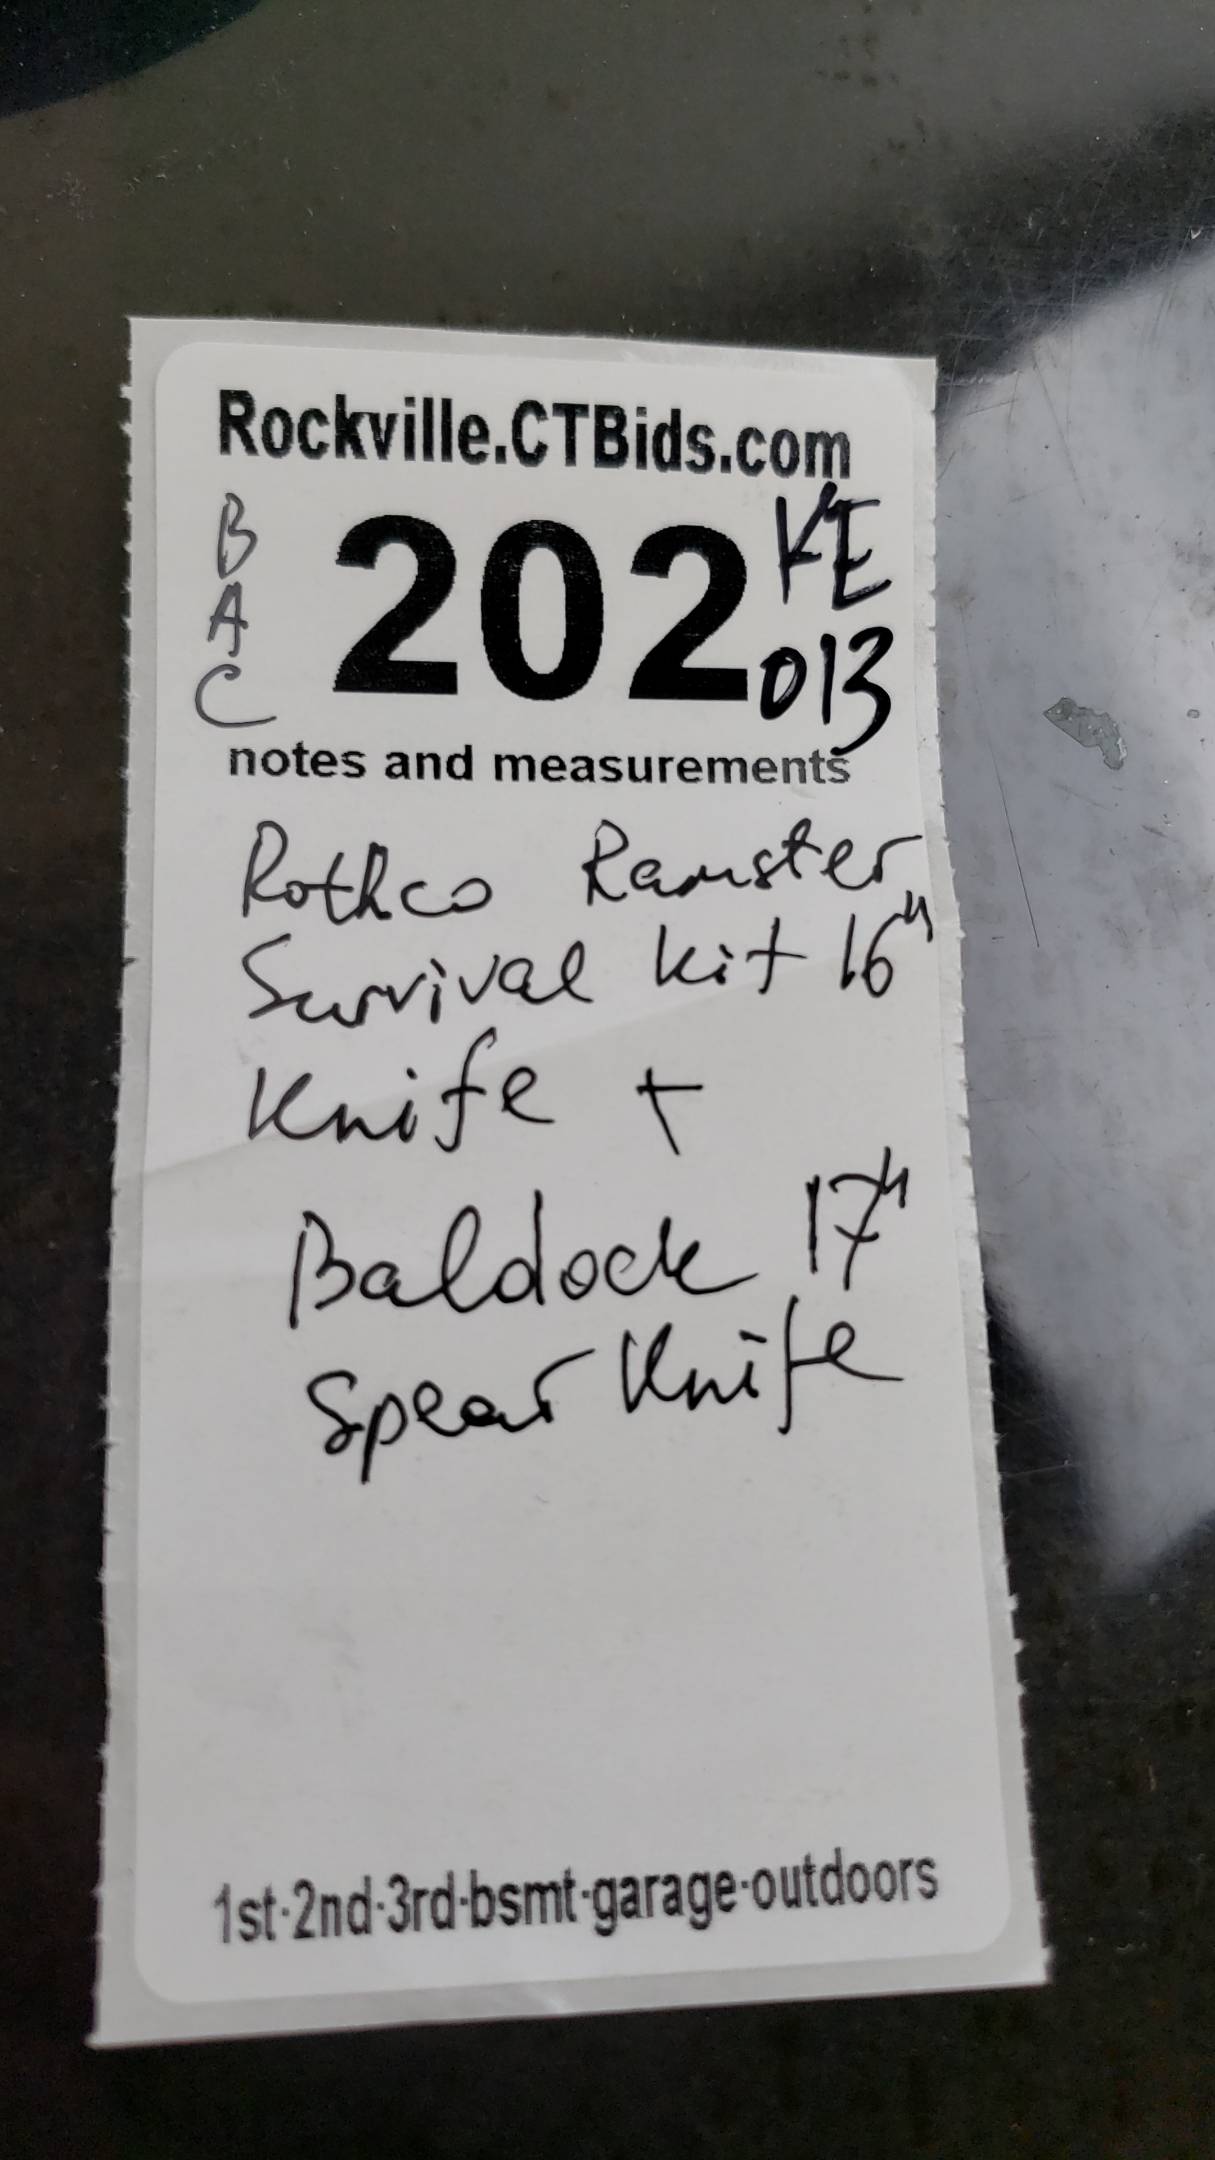 Rockville.CTBids.com
B
A
C
202
KE
013
notes and measurements
Rothco Ramster
Survival kit 16"
Knife +
Baldock 17"
Spear Knife
1st·2nd·3rd·bsmt·garage·outdoors